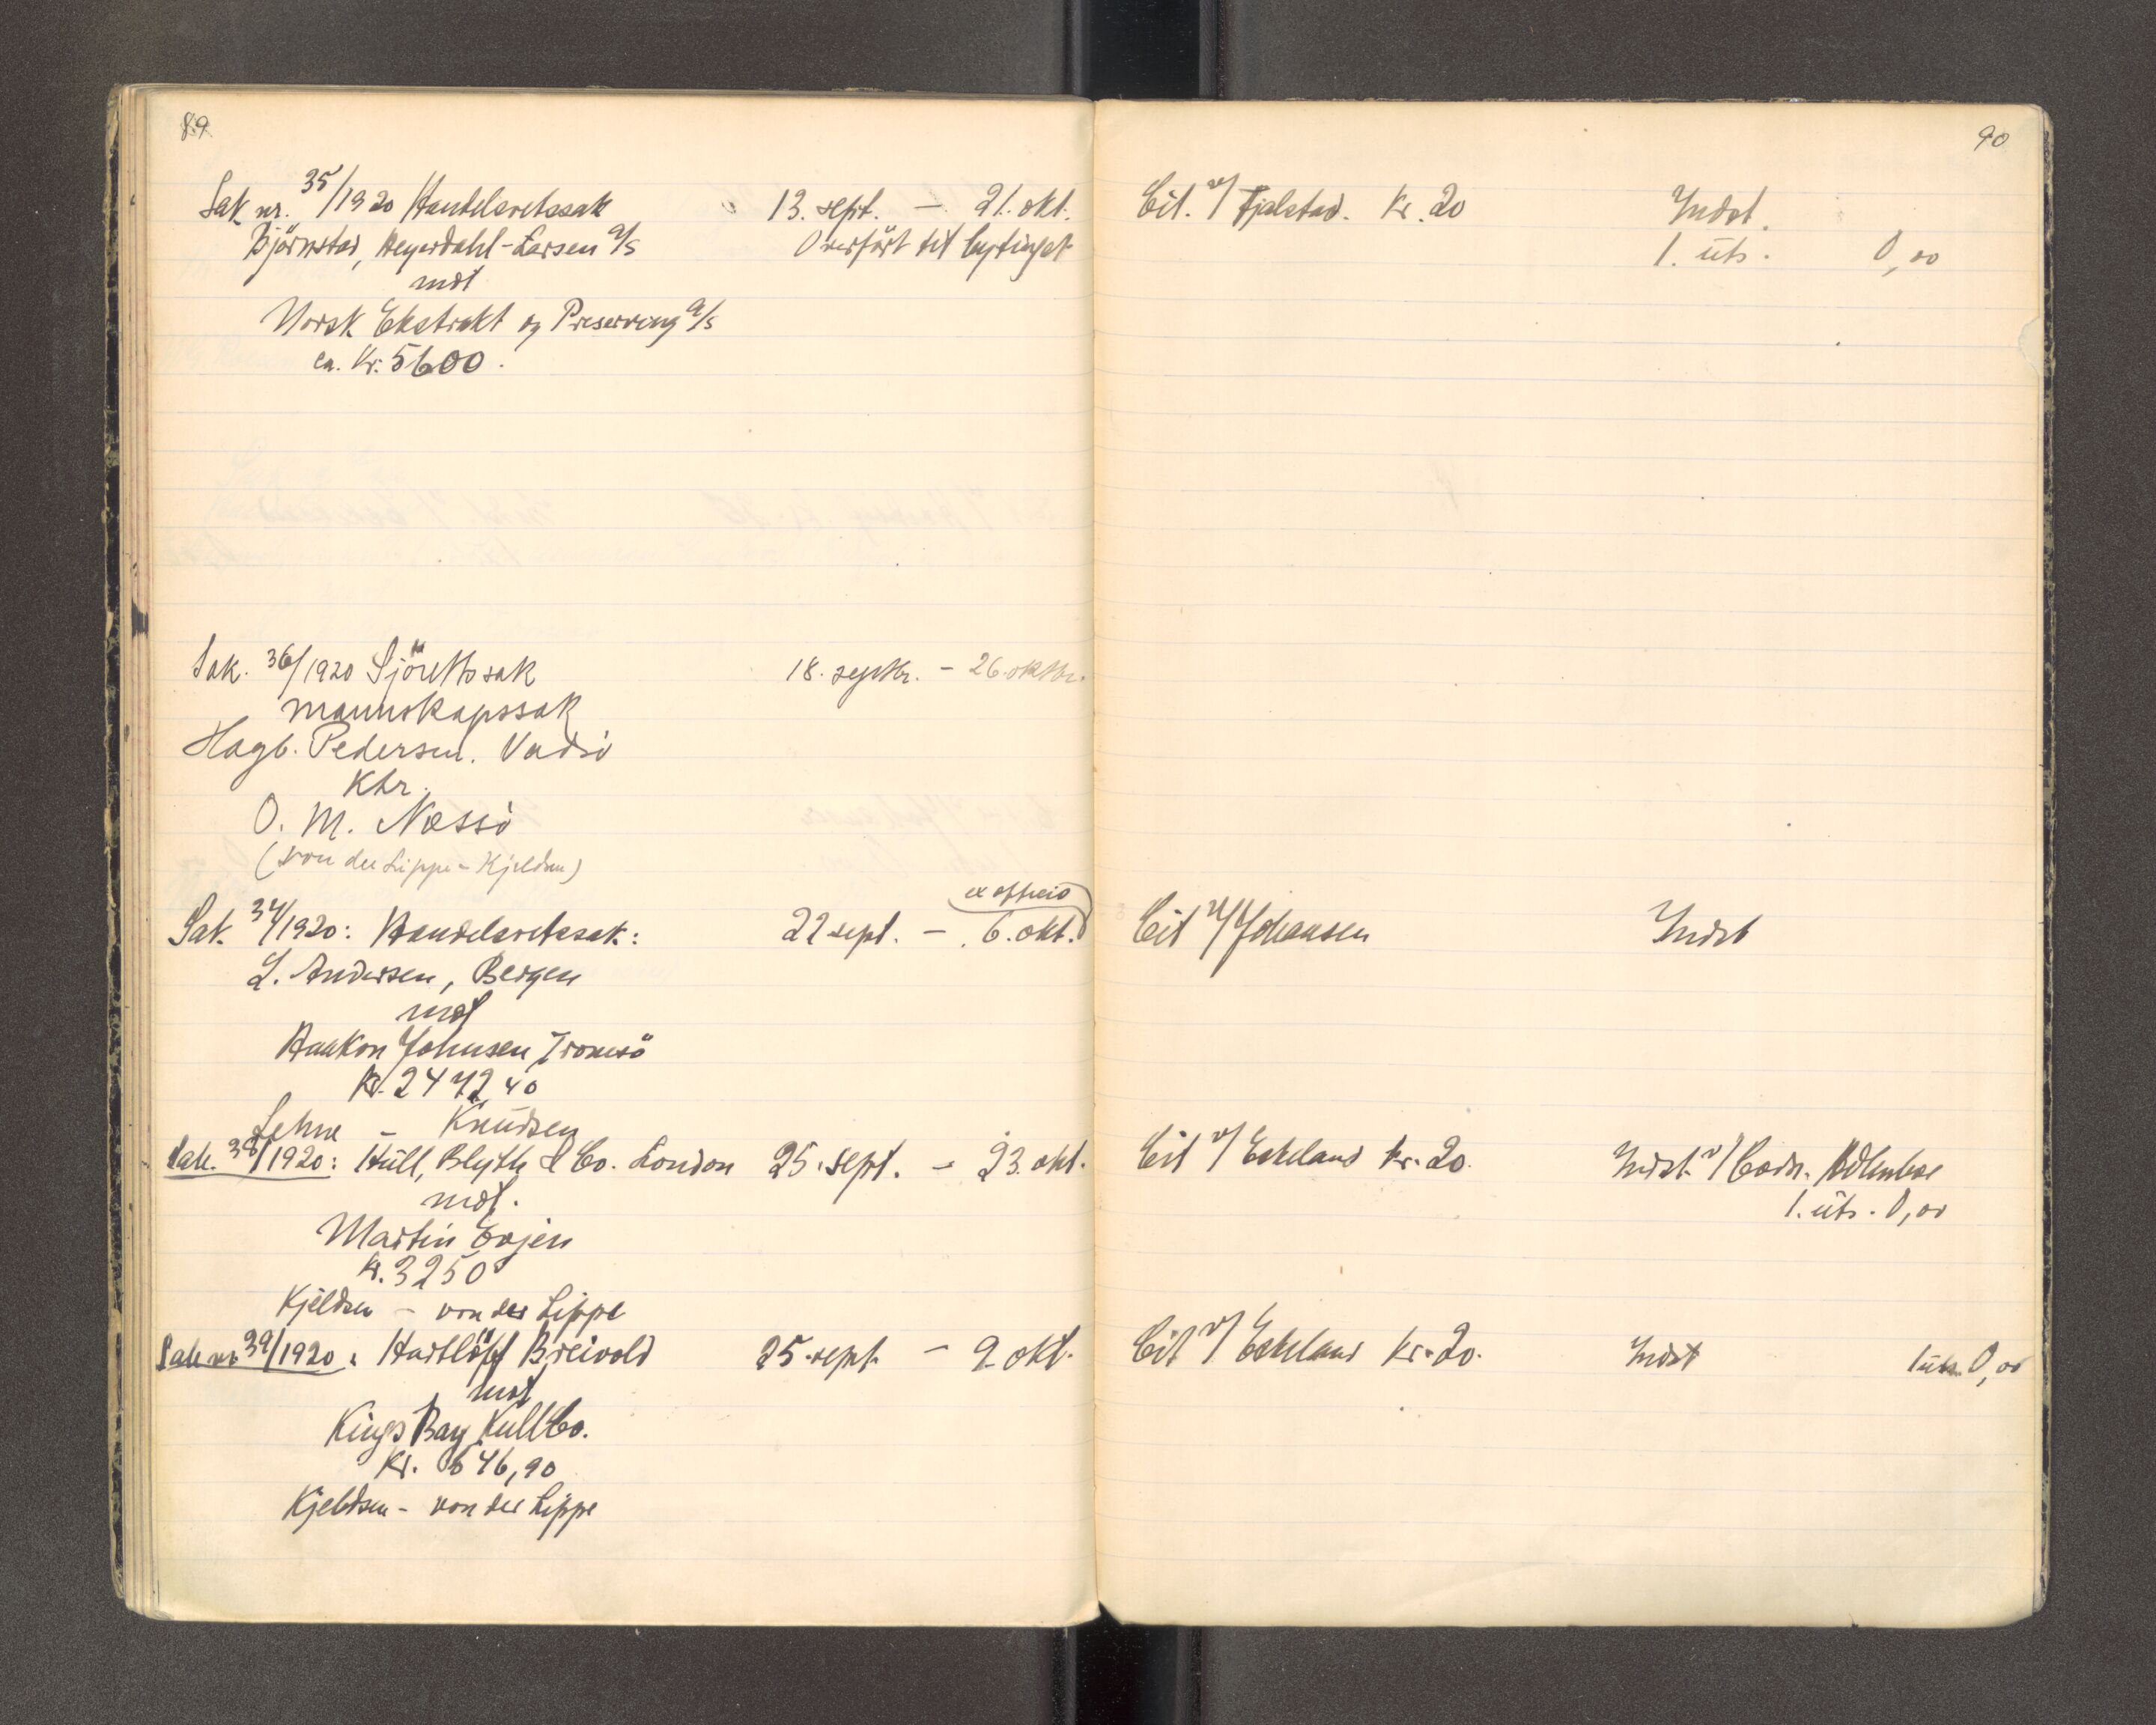 89
Sak nr. 35/1920 Handelsretssak 13. sept. — 21. okt.
Björnstad, Heyerdahl-Larsen a/s Overfört til bytinget
mot
Norsk Ekstrakt og Preserving a/s
ca. Kr. 5600.
Sak. 36/1920 Sjörettssak 18. septbr. - 26. oktbr.
mannskapssak
Hagb. Pedersen. Vadsö
ktr.
O. M. Næssö
(von der Lippe - Kjeldsen)
ex officio
Sak. 37/1920: Handelsretssak: 22 sept. — 6. okt.
L. Andersen, Bergen
mot
Haakon Johnsen Tromsö
Kr. 2472,40
Lehne – Knudsen
Sak. 38/1920: Hull, Blyth & Co. London 25. sept. – 23. okt.
mot.
Martin Evjen
Kr. 3250
Kjeldsen – von der Lippe
Sak nr 39/1920. Hartlöff Breivold 25. sept. – 9. okt.
mot
Kings Bay Kull Co.
Kr. 646,90
Kjeldsen - von der Lippe
90
Cit. v/ Fjalstad. Kr. 20 Indst.
1. uts. 0,00
Cit v/ Johansen Indst
Cit v/ Eskeland kr. 20. Indst. v/ Holmboe
1. uts. 0,00
Cit v/ Eskeland kr. 20. Indst 1 uts. 0,00